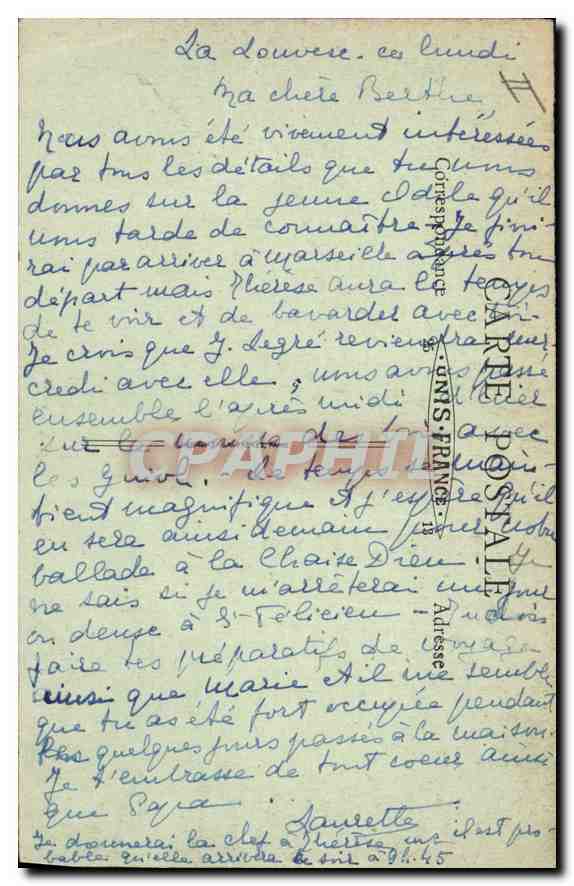 La Louvesc. ce lundi
II
Ma chère Berthe
Nous avons été vivement intéressées
par tous les détails que tu nous
donnes sur la jeune Odile qu'il
nous tarde de connaître. Je fini-
rai par arriver à Marseille après ton
départ mais Thérèse aura le temps
de te voir et de bavarder avec toi.
Je crois que J. Legré reviendra mer-
credi avec elle, nous avons passé
ensemble l'après midi d'hier
sur avec
les . Le temps se main-
tient magnifique et j'espère qu'il
en sera ainsi demain pour notre
ballade à la Chaise Dieu. Je
ne sais si je m'arrêterai un jour
ou deux à St Félicien - Tu dois
faire tes préparatifs de voyage
ainsi que Marie et il me semble
que tu as été fort occupée pendant
ces quelques jours passés à la maison.
Je t'embrasse de tout coeur ainsi
que Papa.
Laurette
Je donnerai la clef à Thérèse, il est pro-
bable qu'elle arrivera le soir à 9h.45
CARTE POSTALE
Correspondance
Adresse
95 · UNIS-FRANCE · 13
CPAPHIL